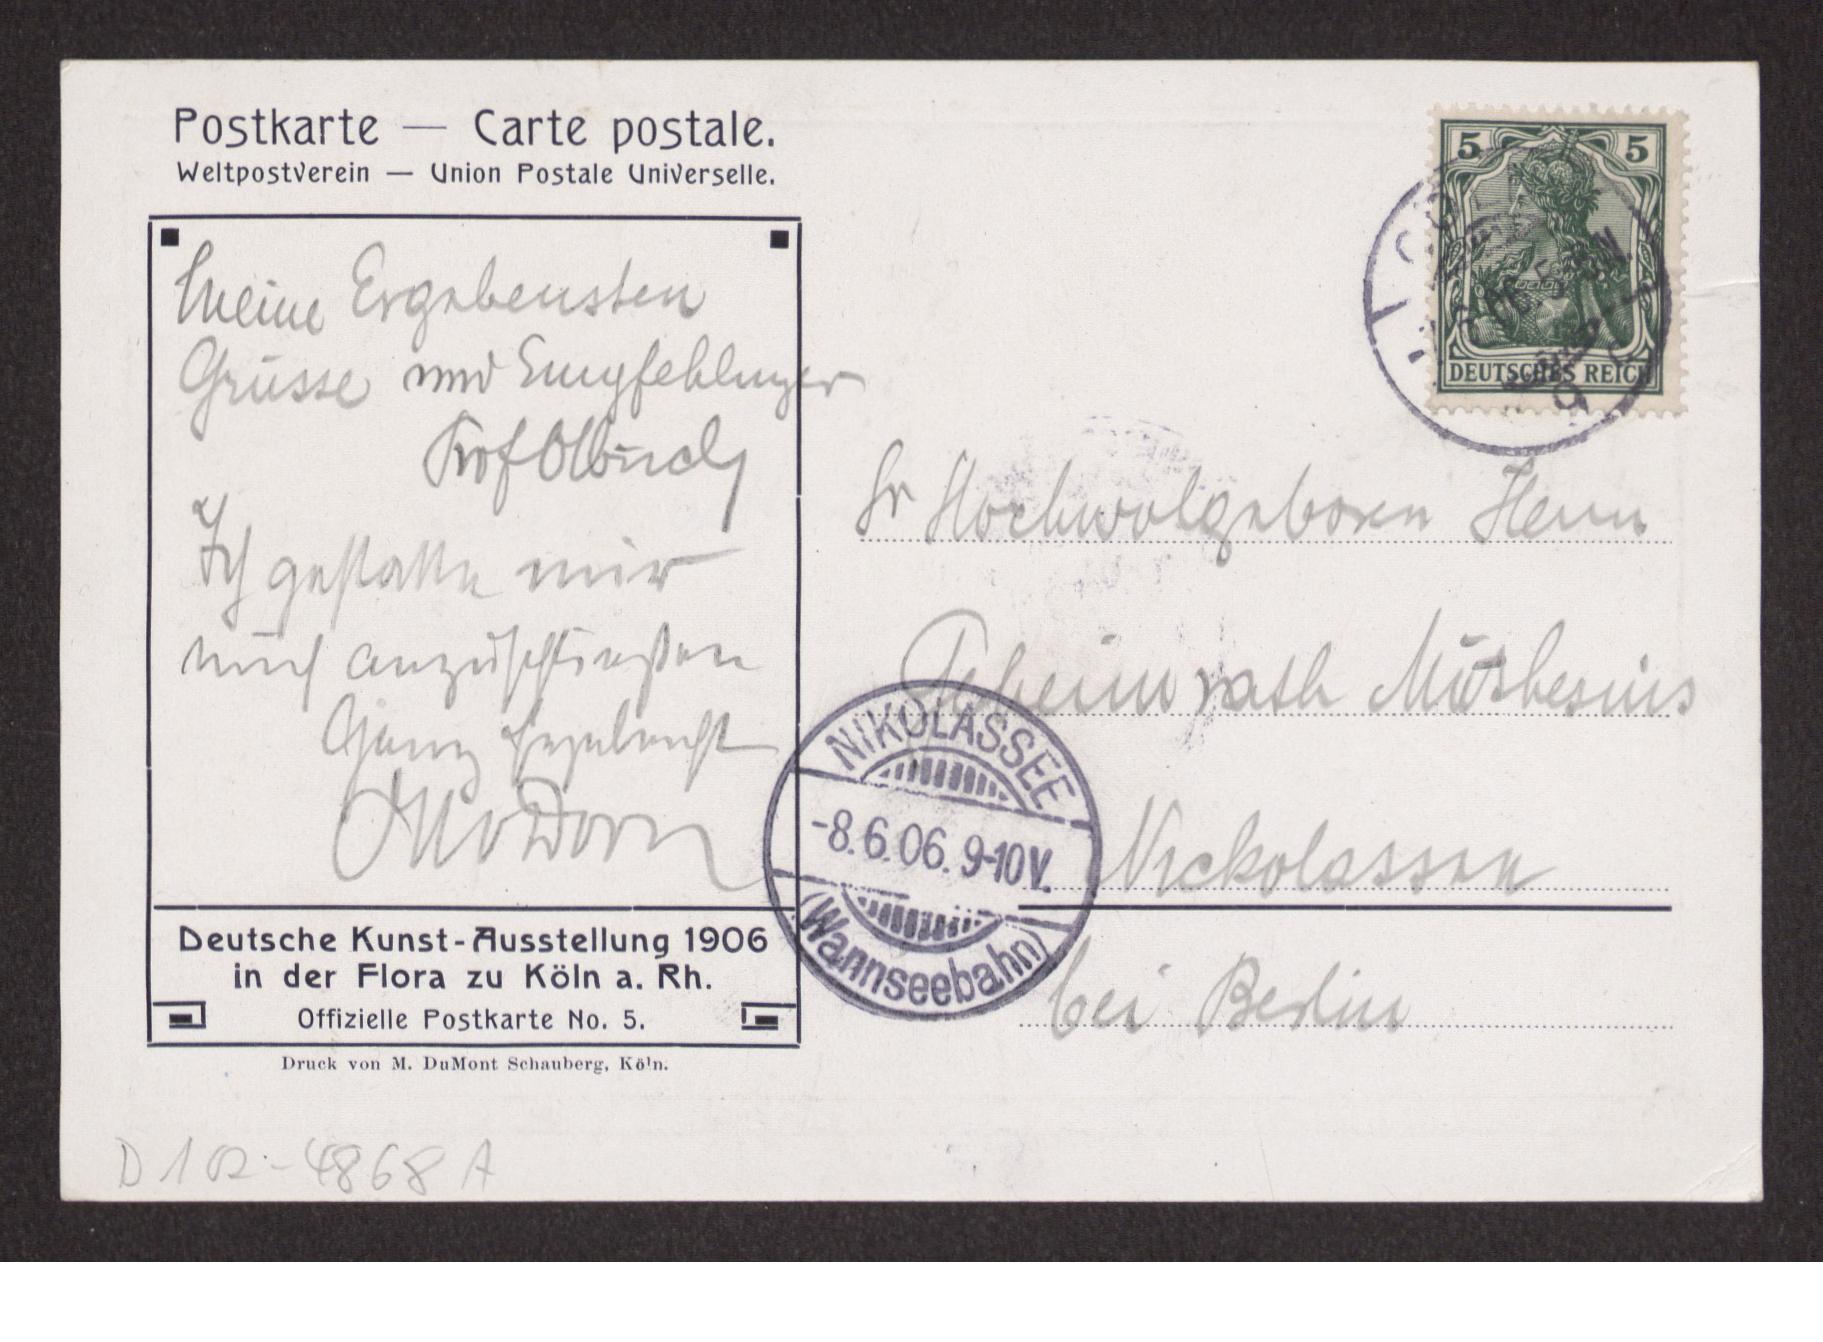 Postkarte — Carte postale.
Weltpostverein — Union Postale Universelle.
Meine Ergebensten
Grüsse und Empfehlungen
Prof Olbrich
Ich gestatte mir
mich anzuschließen
Ganz Ergebenst
Otto Dorn
Deutsche Kunst-Ausstellung 1906
in der Flora zu Köln a. Rh.
Offizielle Postkarte No. 5.
Druck von M. DuMont Schauberg, Köln.
D 102-4868 A
5 5
DEUTSCHES REICH
Sr Hochwolgeboren Herrn
Geheimrath Muthesius
Nickolassee
bei Berlin
NIKOLASSEE
-8.6.06. 9-10V.
(Wannseebahn)